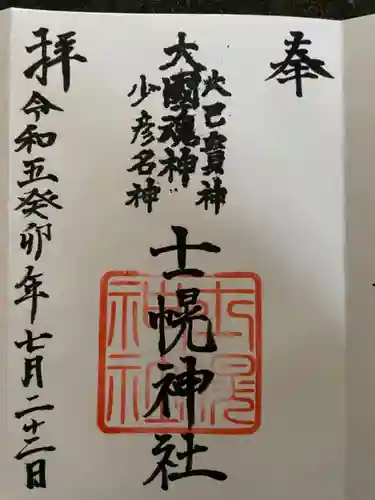 奉
大己貴神
大國魂神
少彦名神
士幌神社
士幌
神社
拝
令和五癸卯年七月二十三日